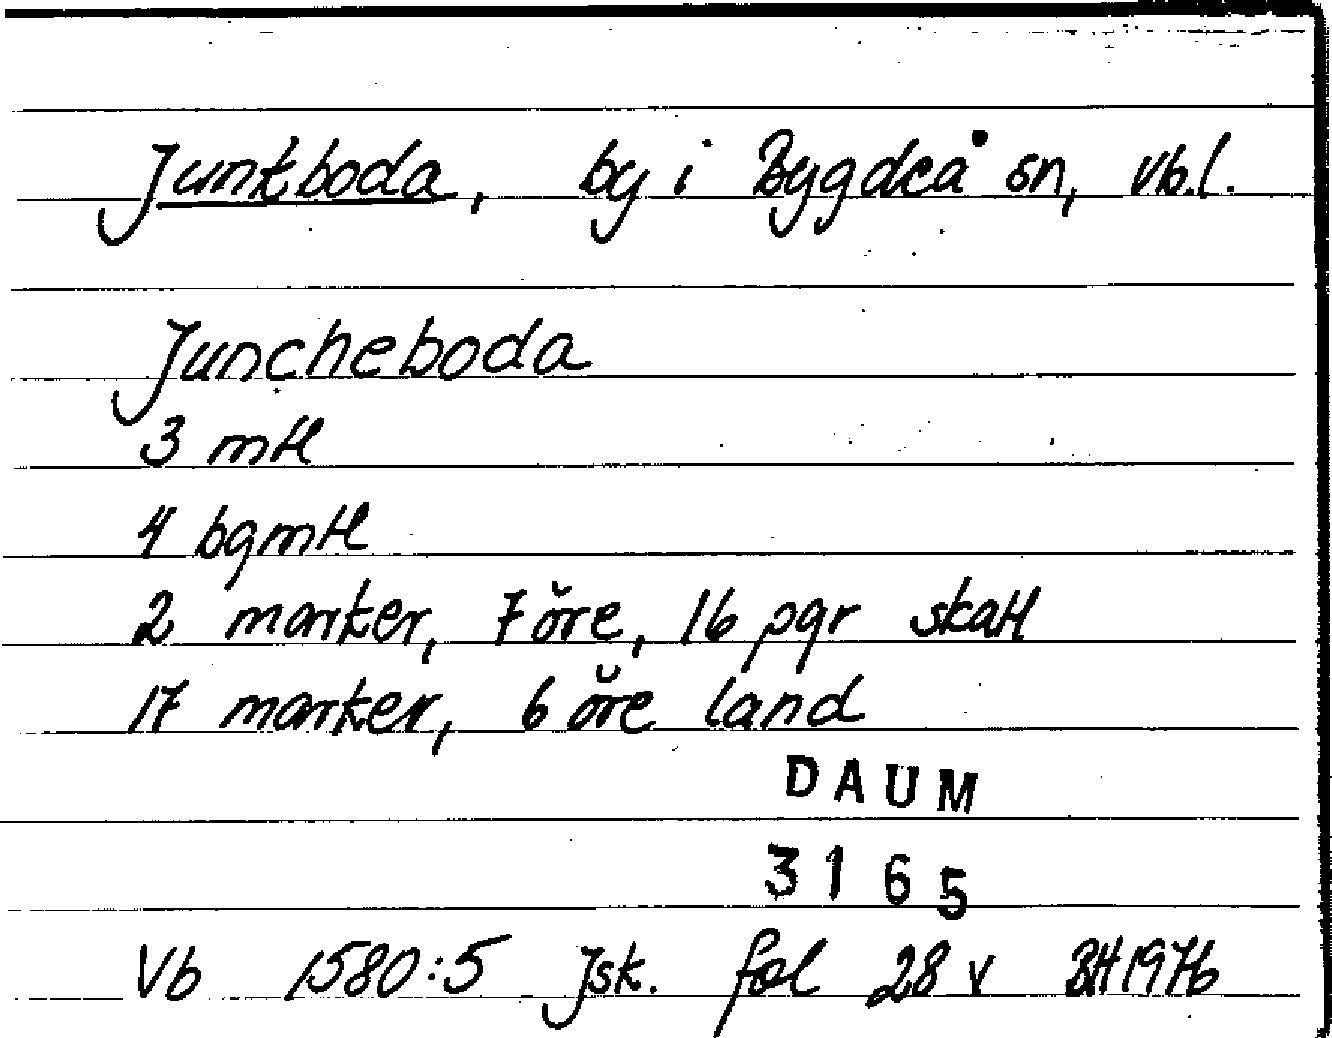 Junkboda, by i Bygdeå sn, Vb.l.
Juncheboda
3 mtl
4 bgmtl
2 marker, 7 öre, 16 pgr skatt
17 marker, 6 öre land
DAUM
3165
Vb 1580:5 Jsk. fol 28 v BH 1976